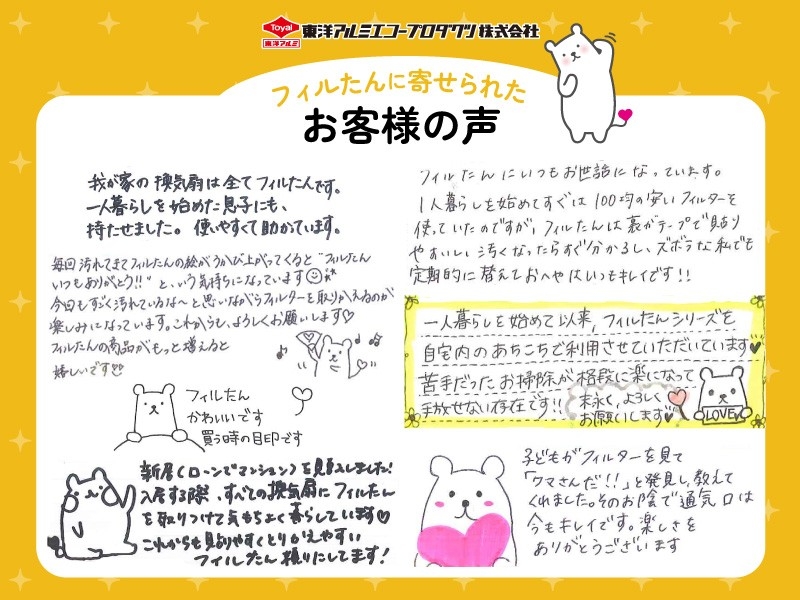 Toyal
東洋アルミ
東洋アルミエコープロダクツ株式会社
フィルたんに寄せられた
お客様の声
我が家の換気扇は全てフィルたんです。
一人暮らしを始めた息子にも、
持たせました。使いやすくて助かています。
毎回汚れてきてフィルたんの絵がうかび上がってくると"フィルたん
いつもありがとう!!"と、いう気持ちになっています
今回もすごく汚れているな〜と思いながらフィルターを取りかえるのが
楽しみになっています。これからも、よろしくお願いします♡
フィルたんの商品がもっと増えると
嬉しいです
フィルたん
かわいいです
買う時の目印です
新居(ローンでマンション)を購入しました!
入居する際、すべての換気扇にフィルたん
を取りつけて気もちよく暮らしています♥
これからも見やすくとりかえやすい
フィルたん頼りにしてます!
フィルたんにいつもお世話になっています。
1人暮らしを始めてすぐは100均の安いフィルターを
使っていたのですが、フィルたんは裏がテープで貼り
やすいし、汚くなったらすぐ分かるし、ズボラな私でも
定期的に替えておへやはいつもキレイです!!
一人暮らしを始めて以来、フィルたんシリーズを
自宅内のあちこちで利用させていただいています♥
苦手だったお掃除が格段に楽になって
手放せない存在です!!
末永く、よろしく
お願いします♥
LOVE
子どもがフィルターを見て
「クマさんだ!!」と発見し教えて
くれました。そのお陰で通気口は
今もキレイです。楽しさを
ありがとうございます